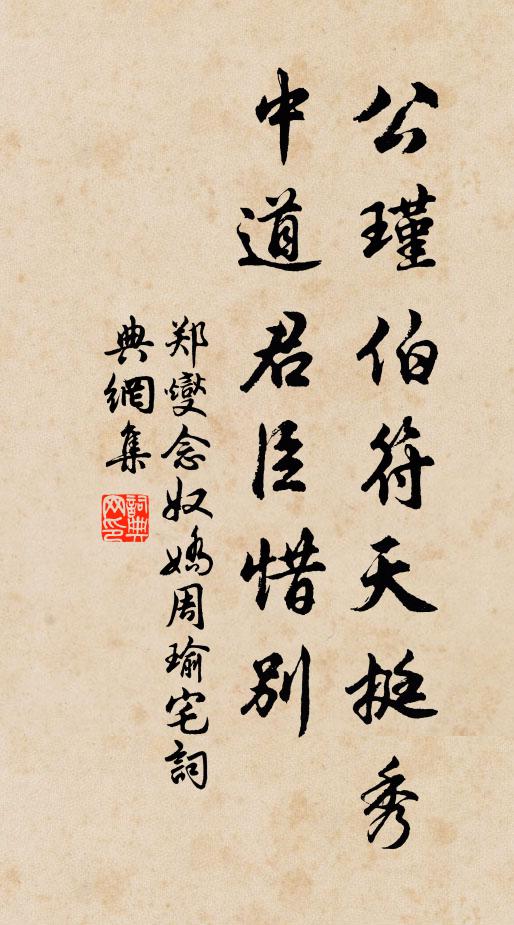 公瑾伯符天挺秀
中道君臣惜别
郑燮念奴娇周瑜宅詞
典網集
詞典网印